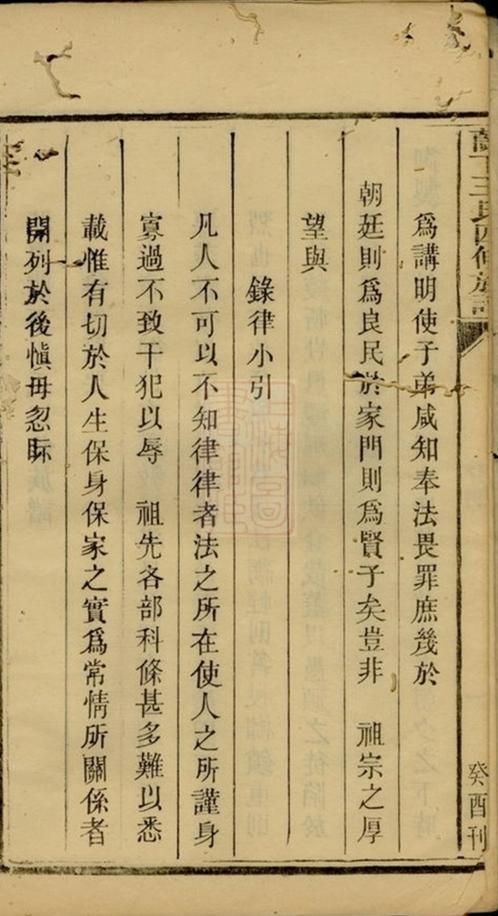 爲講明使子弟咸知奉法畏罪庶幾於
朝廷則爲良民於家門則爲賢子矣豈非　祖宗之厚
望與
錄律小引
凡人不可以不知律律者法之所在使人之所謹身
寡過不致干犯以辱　祖先各部科條甚多難以悉
載惟有切於人生保身保家之實爲常情所關係者
開列於後愼毋忽眎
癸酉刊